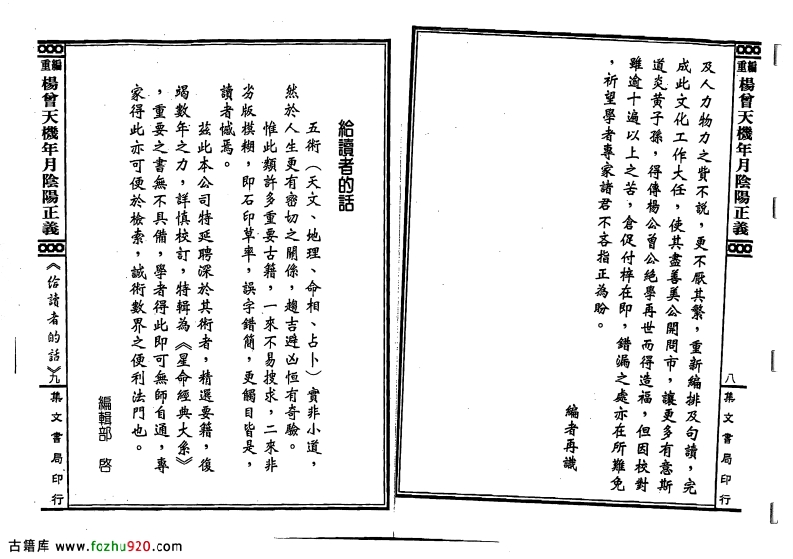 重編 楊曾天機年月陰陽正義
八
集文書局印行
及人力物力之費不說，更不厭其繁，重新編排及句讀，完
成此文化工作大任，使其盡善美公開問市，讓更多有意斯
道炎黃子孫，得傳楊公曾公絕學再世而得造福，但因校對
雖逾十遍以上之苦，倉促付梓在即，錯漏之處亦在所難免
，祈望學者專家諸君不吝指正為盼。
編者再識
給讀者的話
五術（天文、地理、命相、占卜）實非小道，
然於人生更有密切之關係，趨吉避凶恒有奇驗。
惟此類許多重要古籍，一來不易搜求，二來非
劣版模糊，即石印草率，誤字錯簡，更觸目皆是，
讀者憾焉。
茲此本公司特延聘深於其術者，精選要籍，復
竭數年之力，詳慎校訂，特輯為《星命經典大系》
，重要之書無不具備，學者得此即可無師自通，專
家得此亦可便於檢索，誠術數界之便利法門也。
編輯部 啓
重編 楊曾天機年月陰陽正義
《給讀者的話》
九
集文書局印行
古籍库 www.fozhu920.com